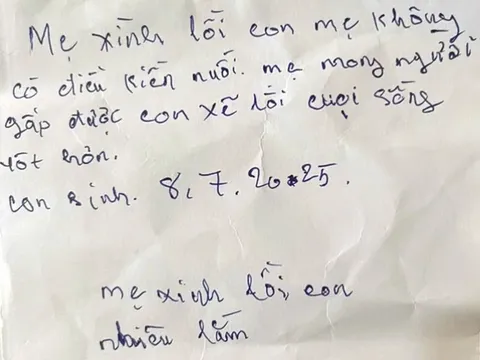 Mẹ xình lỗi con mẹ không
có điều kiến nuối. mẹ mong người
gấp được con xẽ lỗi cuọi sống
tốt hơn.
con sinh. 8, 7, 2025.
mẹ xinh lỗi, con
nhiều lắm